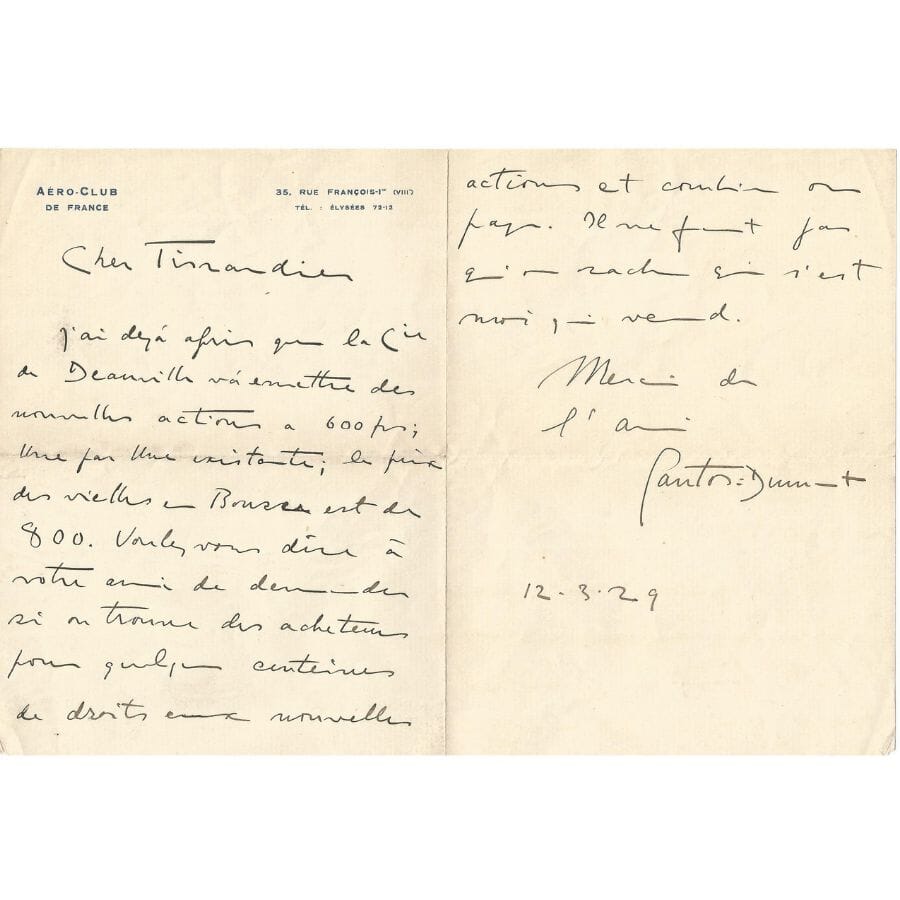 AÉRO-CLUB
DE FRANCE
35, RUE FRANÇOIS-Iᵉʳ (VIIIᵉ)
TÉL. : ÉLYSÉES 72-12
Cher Tissandier
J'ai dejá apris que la Cie
de Deauville vá emettre des
nouvelles actions a 600 frs;
Une par Une existante; le prix
des vielles en Bourse est de
800. Voulez vous dire à
votre ami de demander
si on trouve des acheteurs
pour quelques centeines
de droits aux nouvelles
actions et combien on
paye. Il ne faut pas
qu'on sache que s'est
moi qui vend.
Merci de
l'ami
Santos=Dumont
12-3-29